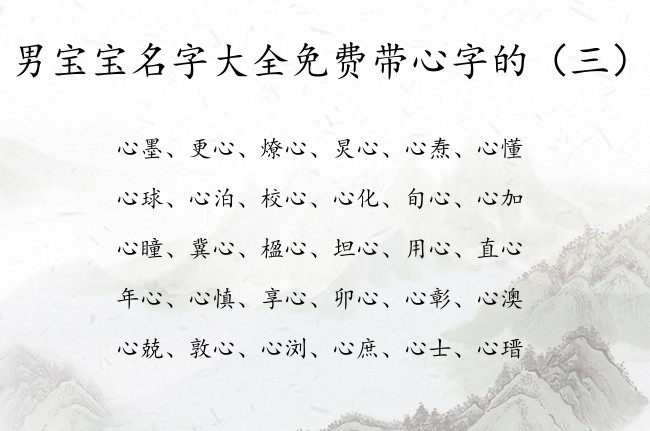 男宝宝名字大全免费带心字的（三）
心墨、更心、燎心、炅心、心焘、心懂
心球、心泊、校心、心化、旬心、心加
心瞳、冀心、楹心、坦心、用心、直心
年心、心慎、享心、卯心、心彰、心澳
心兢、敦心、心浏、心庶、心士、心瑨